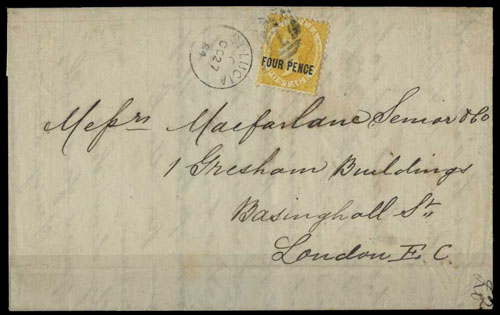 ST LUCIA
C
OC 27
84
FOUR PENCE
POSTAGE
Messrs Macfarlane Senior & Co
1 Gresham Buildings
Basinghall St.,
London E C.